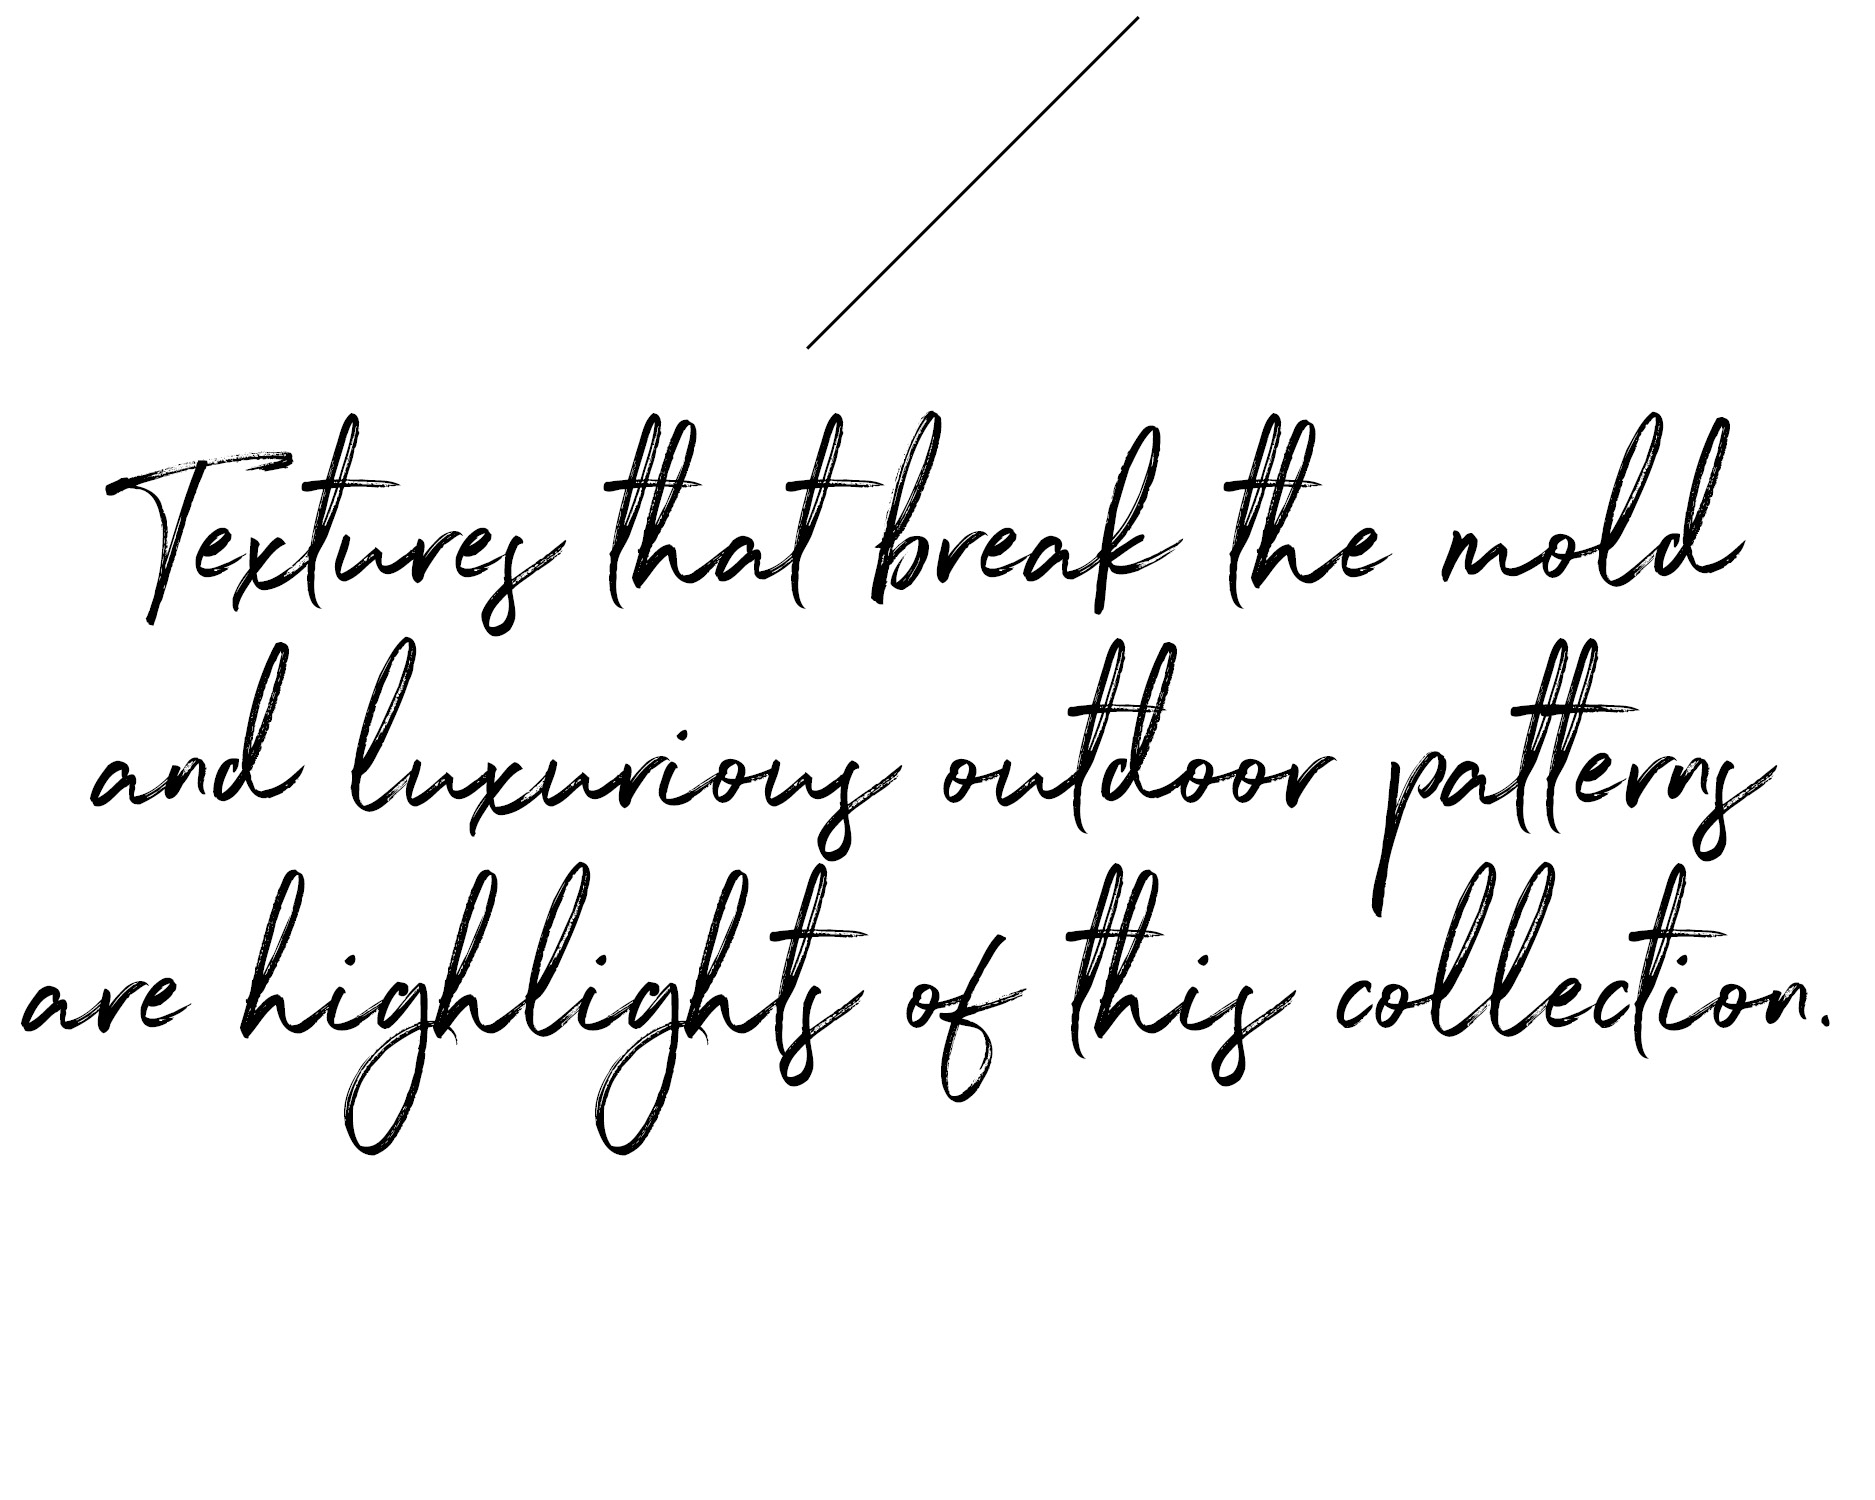 Textures that break the mold
and luxurious outdoor patterns
are highlights of this collection.